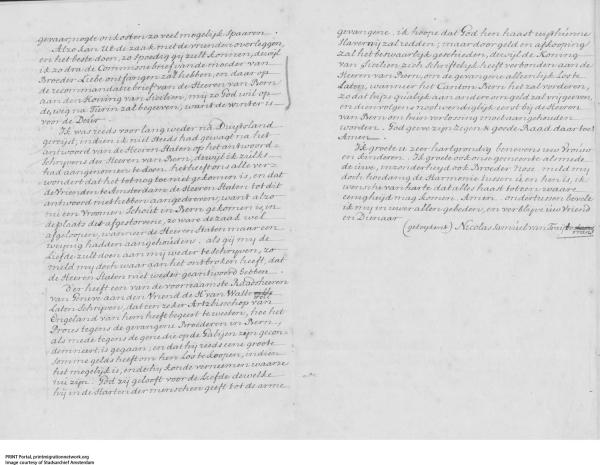 gevaar, nogte onkosten zo veel mogelijk spaaren.
Alzo kan UE de zaak met de vrienden overleggen,
en het beste doen, zo spoedig gij zult konnen, dewijl
ik zo dra de Commone brief van de moeder van
Broeder Liebe ontfangen zal hebben, en daar op
de recommandatie brief van de Heeren van Bern
aan den Koning van Sicilien, mij zo God wil op
de weg na Turin zal begeeven, want de winter is
voor de Deur.
Ik was reeds voor lang weder na Duijtsland
gereijst; indien ik niet steeds had gewagt na het
antwoord van de Heeren Staten op het antwoord
Schrijvens der Heeren van Bern, dewijl ik zulks
had aangenomen te doen. het heeft ons alle ver-
wondert dat het tot nog toe niet gekomen is, en dat
de Vrienden te Amsterdam de Heeren Staten tot dit
antwoord niet hebben aangedreven; want alzo
nu een Vroomen Schout in Bern gekomen is, in
de plaats des afgestorvene, zo ware de zaak wel
afgelopen, wanneer de Heeren Staten maar een
weijnig hadden aangehouden. als gij mij de
Liefde zult doen aan mij weder te schrijven, zo
meld mij doch waar aan het ontbroken heeft, dat
de Heeren Staten niet weder geantwoord hebben.
Der heeft een van de voornaamste Raadsheeren
van Geneve aan den Vriend de Hr van Wattewille
Laten Schrijven, dat een zeker Artzbisschop van
Engeland van hem heeft begeert te weeten, hoe het
Proces tegens de gevangene Broederen in Bern,
als mede tegens de gene die op de Galijen zijn gecon-
demneert, is gegaan; en dat hij reeds eene groote
somme gelds heeft om hen Los te koopen, indien
het mogelijk is, en dat hij konde verneemen waar ze
nu zijn. God zij gelooft voor de Liefde dewelke
hij in de harten der menschen geeft tot de arme
gevangene, ik hoope dat God hen haast uijt hunne
Slavernij zal redden; maar door geld en afkooping
zal het bezwaarlijk geschieden, dewijl de Koning
van Sicilien zich Schriftelijk heeft verbonden aan de
Heeren van Bern, om de gevangene alleenlijk Los te
Laten, wanneer het Canton Bern het zal vorderen,
zo dat hij ze qualijk aan anderen om geld zal vrijgeven,
en dienvolgens nootwendiglijk eerst bij de Heeren
van Bern om hun verlossing moet aangehouden
worden. God geeve zijn zegen & goede Raad daar toe!
Amen.
Ik groete u zeer hartgrondig benevens uw Vrouw
en Kinderen. Ik groete ook onse gemeente als mede
de uwe, inzonderheijd ook Broeder Nose. meld mij
doch hoedanig de Harmonie tussen u en hen is, ik
wensche van harte dat alles haast tot een waare
eenigheijd mag komen. Amen. ondertussen bevele
ik mij in uwer allen gebeden, en verblijve uw Vriend
en Dienaar
(getekent) Nicolas Samuel van
PRINT Portal, printmigrationnetwork.org
Image courtesy of Stadsarchief Amsterdam